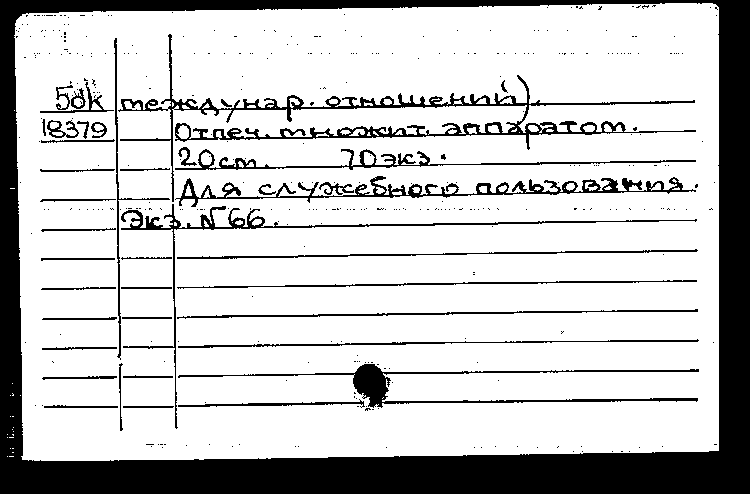 5dk междунар. отношений).
18379 Отпеч. множит. аппаратом.
20см. 70экз.
Для служебного пользования.
Экз. №66.